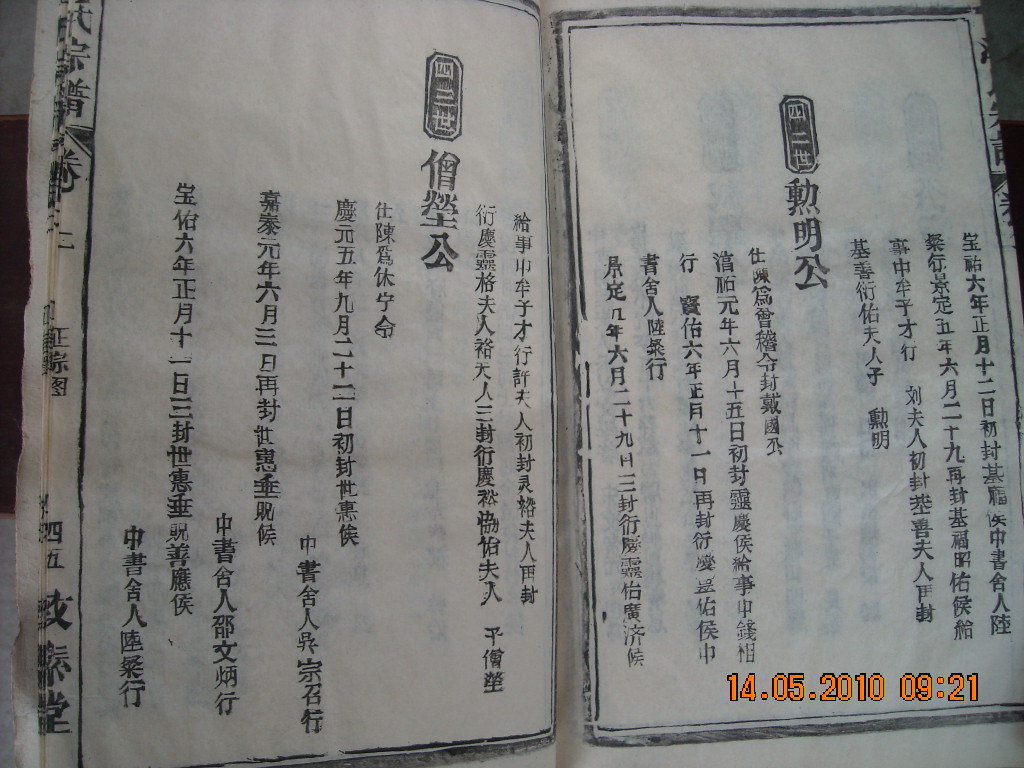 宝祐六年正月十二日初封基福侯中書舍人陸
粲行景定五年六月二十九再封基福昭佑侯給
事中牟子才行　刘夫人初封基善夫人再封
基善衍佑夫人子　勲明
四二世
勲明公
仕陳爲會稽令封戴國公
淳祐元年六月十五日初封靈慶侯給事中錢相
行　寶佑六年正月十一日再封衍慶靈佑侯中
書舍人陸粲行
景定几年六月二十九日三封衍慶靈佑廣济侯
給事中牟子才行許夫人初封灵裕夫人再封
衍慶靈格夫人裕夫人三封衍慶裕協佑夫人　平僧塋
四三世
僧塋公
仕陳爲休宁令
慶元五年九月二十二日初封世惠侯
中書舍人吳宗召行
嘉泰元年六月三日再封世惠垂貺侯
中書舍人邵文炳行
宝佑六年正月十一日三封世惠垂貺善應侯
中書舍人陸粲行
氏宗譜
卷
正宗图
四五
堂
14.05.2010 09:21